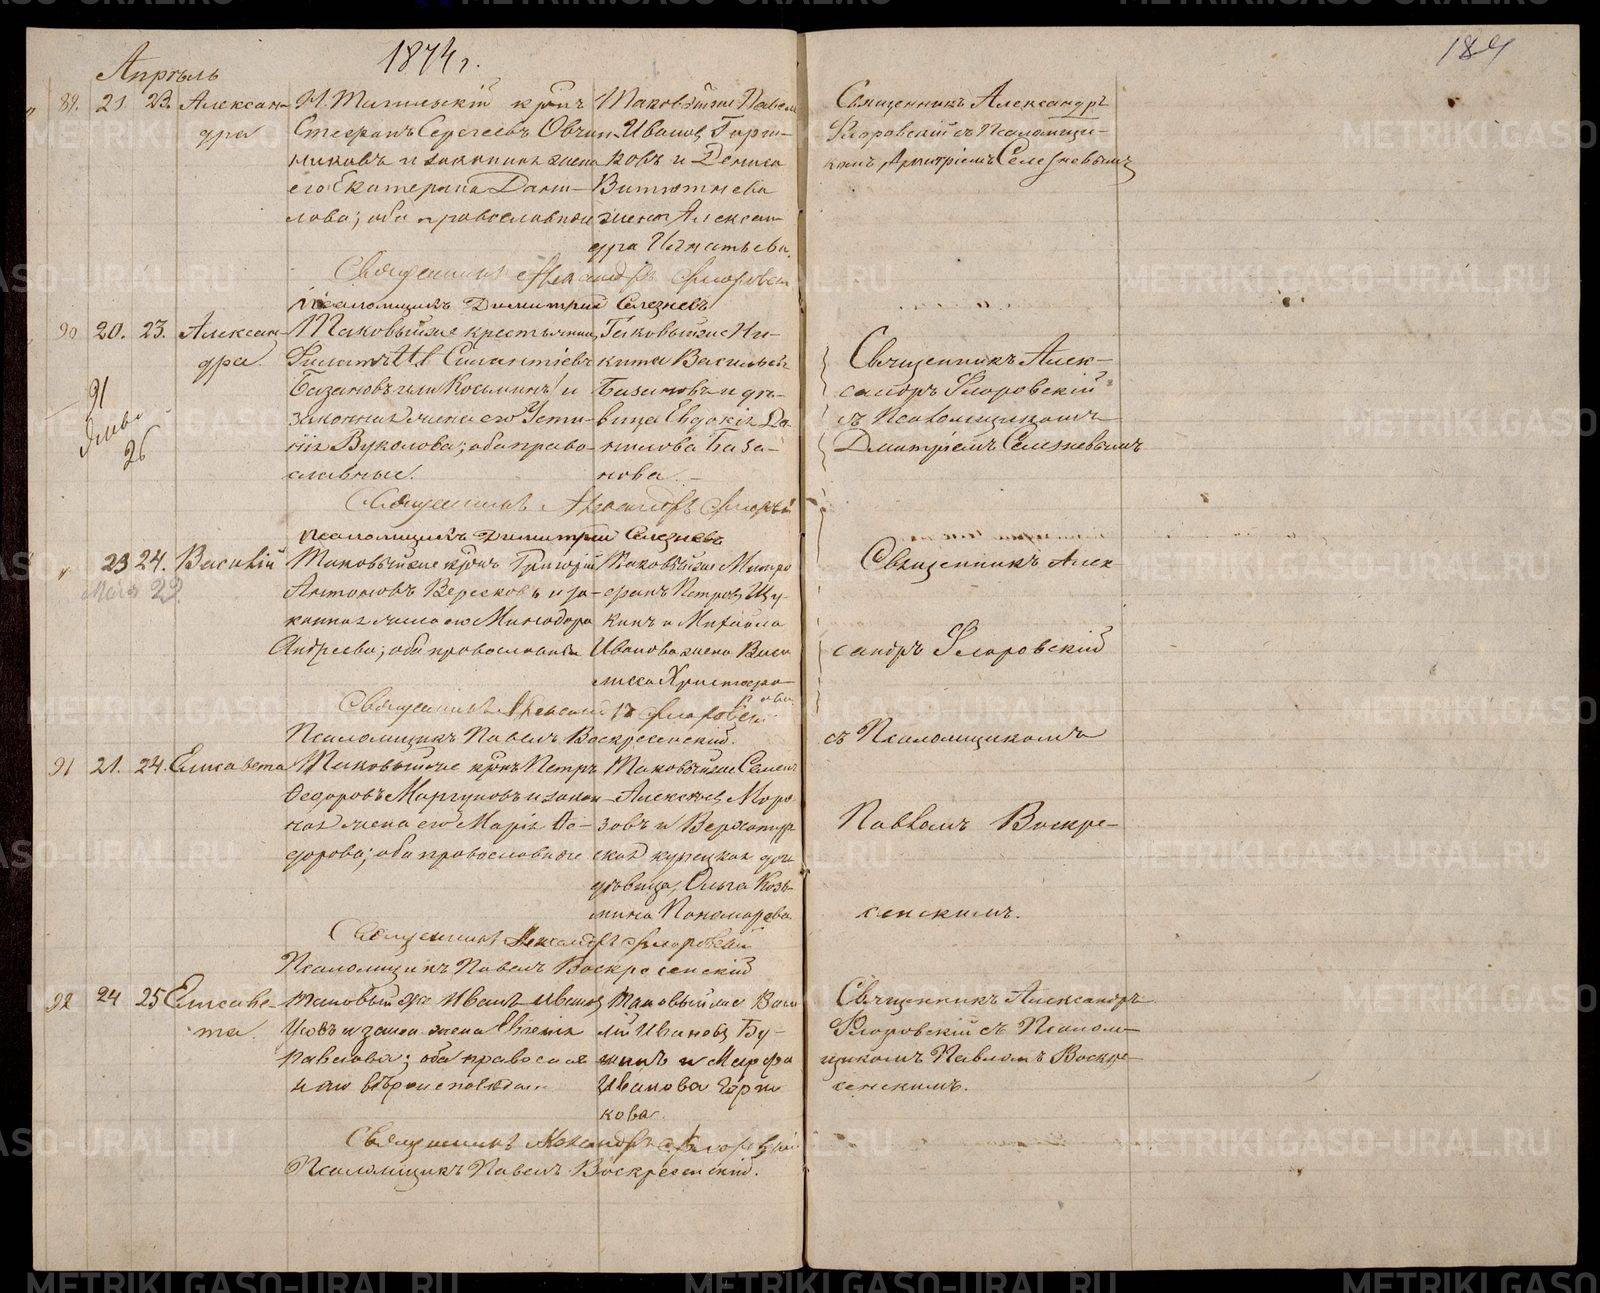 1874 г.
184
Апрѣль
89. 21 23. Алексан-
дра
Н. Тагильскій крт͠нъ
Стефанъ Сергеевъ Овчин-
никовъ и законная жена
его Екатерина Дани-
лова; оба православные
Таковыйже Павелъ
Ивановъ Горш-
ковъ и Дениса
жена Алексан-
дра Игнатьева.
Священникъ Александръ Флоровскій
Псаломщикъ Димитрій Селезневъ
Священникъ Александръ
Флоровскій съ Псаломщи-
комъ Дмитріемъ Селезневымъ
90 20. 23. Алексан-
дра.
Таковыйже крестьянинъ
Силантіевъ
Базановъ или Косьминъ и
законная жена его Усти-
нія Вуколова; оба право-
славные.
Таковыйже Ни-
кита Васильевъ
Базановъ и дѣ-
вица Евдокія Да-
нилова База-
нова.
91
26
Священникъ Александръ Флоровскій
Псаломщикъ Димитрій Селезневъ
Священникъ Алек-
сандръ Флоровскій
съ Псаломщикомъ
Дмитріемъ Селезневымъ
23 24. Василій
Таковыйже крт͠нъ Григорій
Антоновъ Вересковъ и за-
конная жена его Минодора
Андреева; оба православные
Таковыйже Митро
фанъ Петровъ Щу-
кинъ и Михаила
Иванова жена Васи
лисса Христофо-
рова
Священникъ Александръ Флоровскій
Псаломщикъ Павелъ Воскресенскій.
Священникъ Алек
сандръ Флоровскій
съ Псаломщикомъ
Павломъ Воскре-
сенскимъ.
91 21. 24. Елисавета
Таковыйже крт͠нъ Петръ
Ѳедоровъ Моргуновъ и закон-
ная жена его Марія Ѳе-
дорова; оба православные
Таковыйже Семенъ
Алексѣевъ Моро
зовъ и Верхотур
ская купецкая дочь
дѣвица, Ольга Козь-
мина Пономарева
Священникъ Александръ Флоровскій
Псаломщикъ Павелъ Воскресенскій
92 24 25 Елисаве-
та.
Таковый же Иванъ Ивановъ
Усовъ и закон. жена Евгенія
Павлова; оба православ
наго вѣроисповѣдан.
Таковыйже Васи
лій Ивановъ Бу-
шинъ и Марфа
Иванова Горш
кова.
Священникъ Александръ Флоровскій
Псаломщикъ Павелъ Воскресенскій.
Священникъ Александръ
Флоровскій съ Псалом-
щикомъ Павломъ Воскре-
сенскимъ.
METRIKI.GASO-URAL.RU